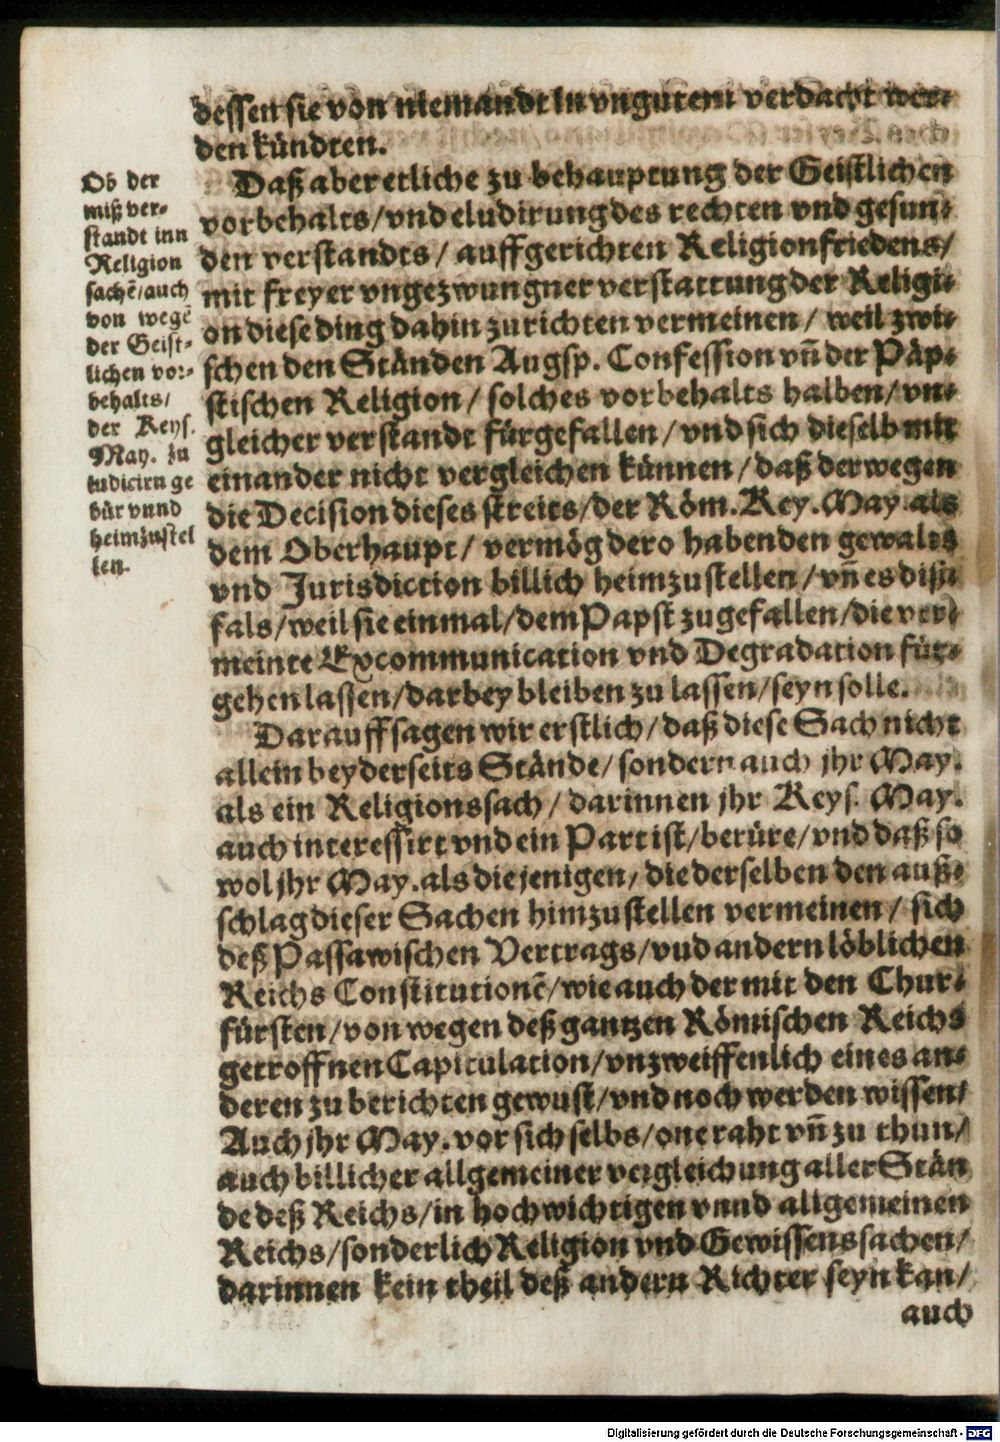 dessen sie von niemandt in vngutem verdacht wer-
den kündten.
Ob der
miß ver-
standt inn
Religion
sachē/auch
von wegē
der Geist-
lichen vor-
behalts/
der Keys.
May. zu
iudicirn ge
bür vnnd
heimzustel
len.
Daß aber etliche zu behauptung der Geistlichen
vorbehalts/vnd eludirung des rechten vnd gesun-
den verstandts/ auffgerichten Religionfriedens/
mit freyer vngezwungner verstattung der Religi-
on diese ding dahin zurichten vermeinen/ weil zwi-
schen den Ständen Augsp. Confession vñ der Päp-
stischen Religion/ solches vorbehalts halben/vn-
gleicher verstandt fürgefallen/vnd sich dieselb mit
einander nicht vergleichen künnen/daß derwegen
die Decision dieses streits/der Röm. Key. May. als
dem Oberhaupt/ vermög dero habenden gewalts
vnd Jurisdiction billich heimzustellen/vñ es diß
fals/weil sie einmal/dem Papst zugefallen/die ver-
meinte Excommunication vnd Degradation für-
gehen lassen/darbey bleiben zu lassen/seyn solle.
Darauff sagen wir erstlich/daß diese Sach nicht
allein beyderseits Stände/ sondern auch jhr May.
als ein Religionssach/darinnen jhr Keys. May.
auch interessirt vnd ein Part ist/berüre/vnd daß so
wol jhr May. als diejenigen/ die derselben den auß-
schlag dieser Sachen himzustellen vermeinen/ sich
deß Passawischen Vertrags/vnd andern löblichen
Reichs Constitutionē/wie auch der mit den Chur-
fürsten/von wegen deß gantzen Römischen Reichs
getroffnen Capitulation/vnzweiffenlich eines an-
deren zu berichten gewust/vnd noch werden wissen/
Auch jhr May. vor sich selbs/one raht vñ zu thun/
auch billicher allgemeiner vergleichung aller Stän
de deß Reichs/in hochwichtigen vnnd allgemeinen
Reichs/sonderlich Religion vnd Gewissenssachen/
darinnen kein theil deß andern Richter seyn kan/
auch
Digitalisierung gefördert durch die Deutsche Forschungsgemeinschaft - DFG